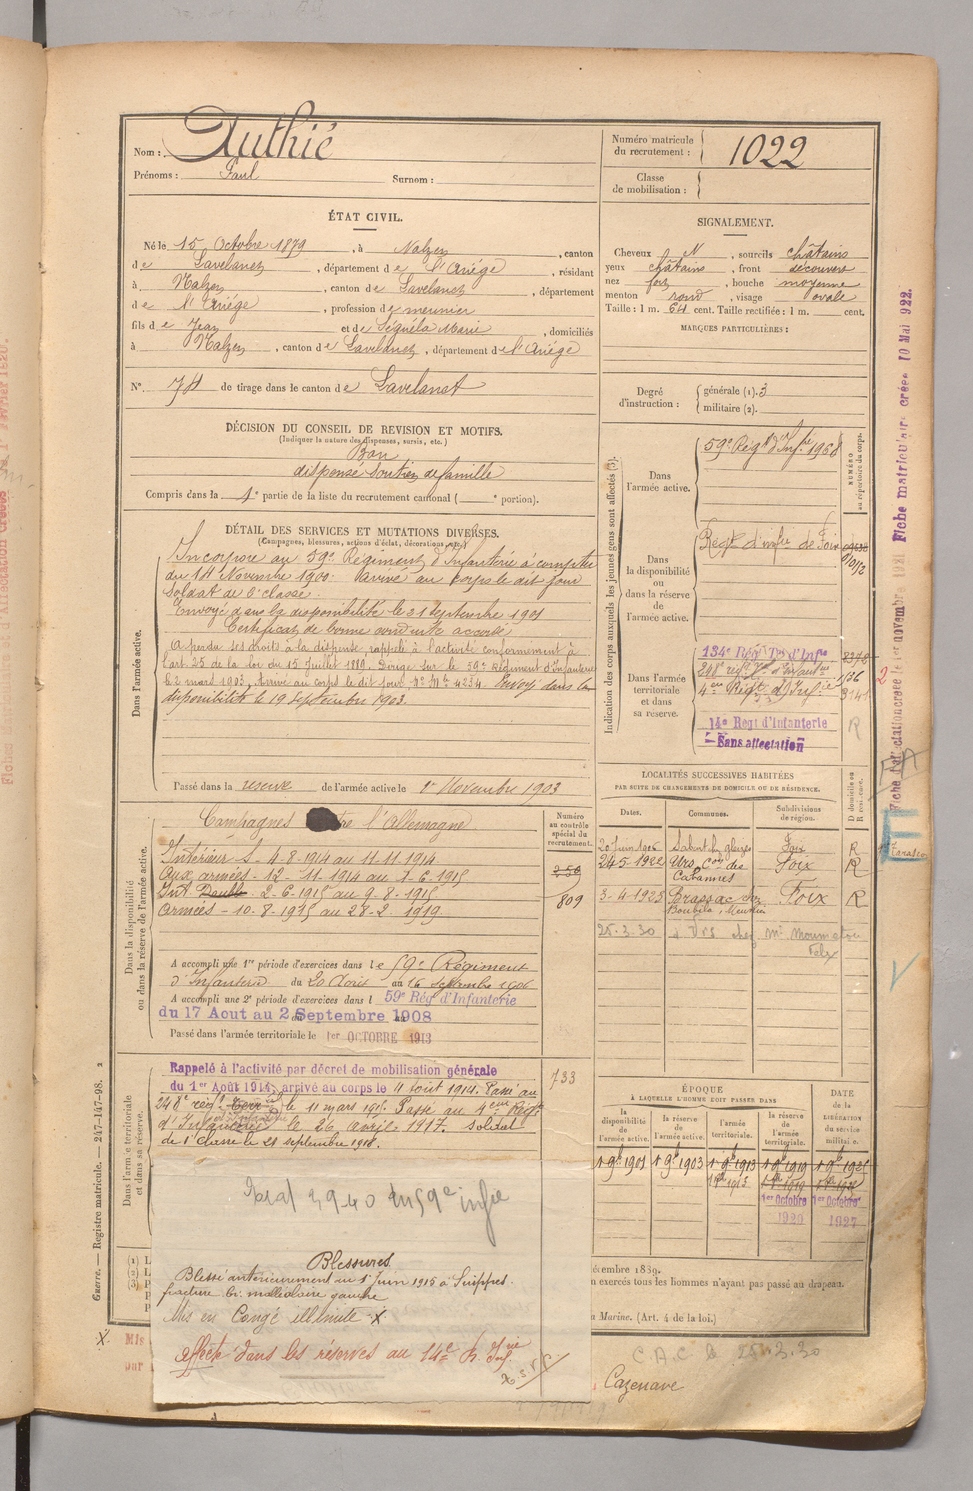 Nom : Authié
Prénoms : Paul Surnom :
Numéro matricule du recrutement : 1022
Classe de mobilisation :
ÉTAT CIVIL.
Né le 15 Octobre 1879, à Nalzen, canton
de Lavelanet, département de l'Ariége, résidant
à Nalzen, canton de Lavelanet, département
de l'Ariége, profession de meunier
fils de Jean et de Séguéla Marie, domiciliés
à Nalzen, canton de Lavelanet, département de l'Ariége
N° 74 de tirage dans le canton de Lavelanet
SIGNALEMENT.
Cheveux N, sourcils châtains
yeux châtains, front découvert
nez fort, bouche moyenne
menton rond, visage ovale
Taille : 1 m. 64 cent. Taille rectifiée : 1 m. cent.
MARQUES PARTICULIÈRES :
Degré d'instruction : générale (1). 3
militaire (2).
DÉCISION DU CONSEIL DE REVISION ET MOTIFS.
(Indiquer la nature des dispenses, sursis, etc.)
Bon
dispensé soutien de famille
Compris dans la 1e partie de la liste du recrutement cantonal ( e portion).
DÉTAIL DES SERVICES ET MUTATIONS DIVERSES.
(Campagnes, blessures, actions d'éclat, décorations, etc.)
Dans l'armée active.
Incorporé au 59e Régiment d'Infanterie à compter
du 14 Novembre 1900. Arrivé au corps le dit jour
Soldat de 2e classe
Envoyé dans la disponibilité le 21 septembre 1901
Certificat de bonne conduite accordé
A perdu ses droits à la dispense, rappelé à l'activité conformément à
l'art. 25 de la loi du 15 Juillet 1889. Dirigé sur le 59e Régiment d'Infanterie
le 2 mars 1903. Arrivé au corps le dit jour. N° Mle 4284. Envoyé dans la
disponibilité le 19 Septembre 1903.
Passé dans la réserve de l'armée active le 1er Novembre 1903
Indication des corps auxquels les jeunes gens sont affectés (3).
NUMÉRO au répertoire du corps.
Dans l'armée active.
59e Régt d'Infie 1968
Dans la disponibilité ou dans la réserve de l'armée active.
Régt d'infie de Foix
Dans l'armée territoriale et dans sa réserve.
134e Régt Ter d'Infie
248e régt
4eme Régt d'Infie
14e Regt d'Infanterie
Sans affectation
LOCALITÉS SUCCESSIVES HABITÉES
PAR SUITE DE CHANGEMENTS DE DOMICILE OU DE RÉSIDENCE.
Dates. Communes. Subdivisions de région.
20 juin 1906 Foix R
24-5-1922 Urs, con des Cabannes Foix R
3-4-1925 Brassac Foix R
25-3-30 à Urs chez Mr
Dans la disponibilité ou dans la réserve de l'armée active.
Numéro au contrôle spécial du recrutement.
Campagnes contre l'Allemagne
Intérieur S - 4-8-1914 au 11-11-1914
Aux armées - 12-11-1914 au 1-6-1915
Int. Double 2-6-1915 au 9-8-1915
Armées - 10-8-1915 au 28-2 1919.
809
A accompli une 1re période d'exercices dans le 59e Régiment
d'Infanterie du 20 Août au 16 septembre 1906
A accompli une 2e période d'exercices dans l 59e Rég d'Infanterie
du 17 Aout au 2 Septembre 1908
Passé dans l'armée territoriale le 1er OCTOBRE 1913
Dans l'armée territoriale et dans sa réserve.
733
Rappelé à l'activité par décret de mobilisation générale
du 1er Août 1914, arrivé au corps le 4 août 1914. Passé au
248e régt le 11 mars 1915. Passé au 4eme Régt
d'Infanterie le 26 avril 1917. Soldat
de 1e classe le 21 septembre 1918.
ÉPOQUE
À LAQUELLE L'HOMME DOIT PASSER DANS
la disponibilité de l'armée active.
la réserve de l'armée active.
l'armée territoriale.
la réserve de l'armée territoriale.
DATE de la LIBÉRATION du service militaire.
1 9bre 1901 1 9bre 1903 1 9bre 1913 1 9bre 1919 1 9bre 1925
1er Octobre 1er Octobre
1920 1927
59e infie
Blessures
Blessé antérieurement au 1er juin 1915 à Suippes.
fracture bi. malléolaire gauche
Mis en Congé illimité
affecté dans les réserves au 14e R. Infie
écembre 1889.
n exercés tous les hommes n'ayant pas passé au drapeau.
a Marine. (Art. 4 de la loi.)
C.A.C le 25.3.30
Cazenave
Guerre. — Registre matricule. — 247-147-98.
Fiche matriculaire créée 10 Mai 922.